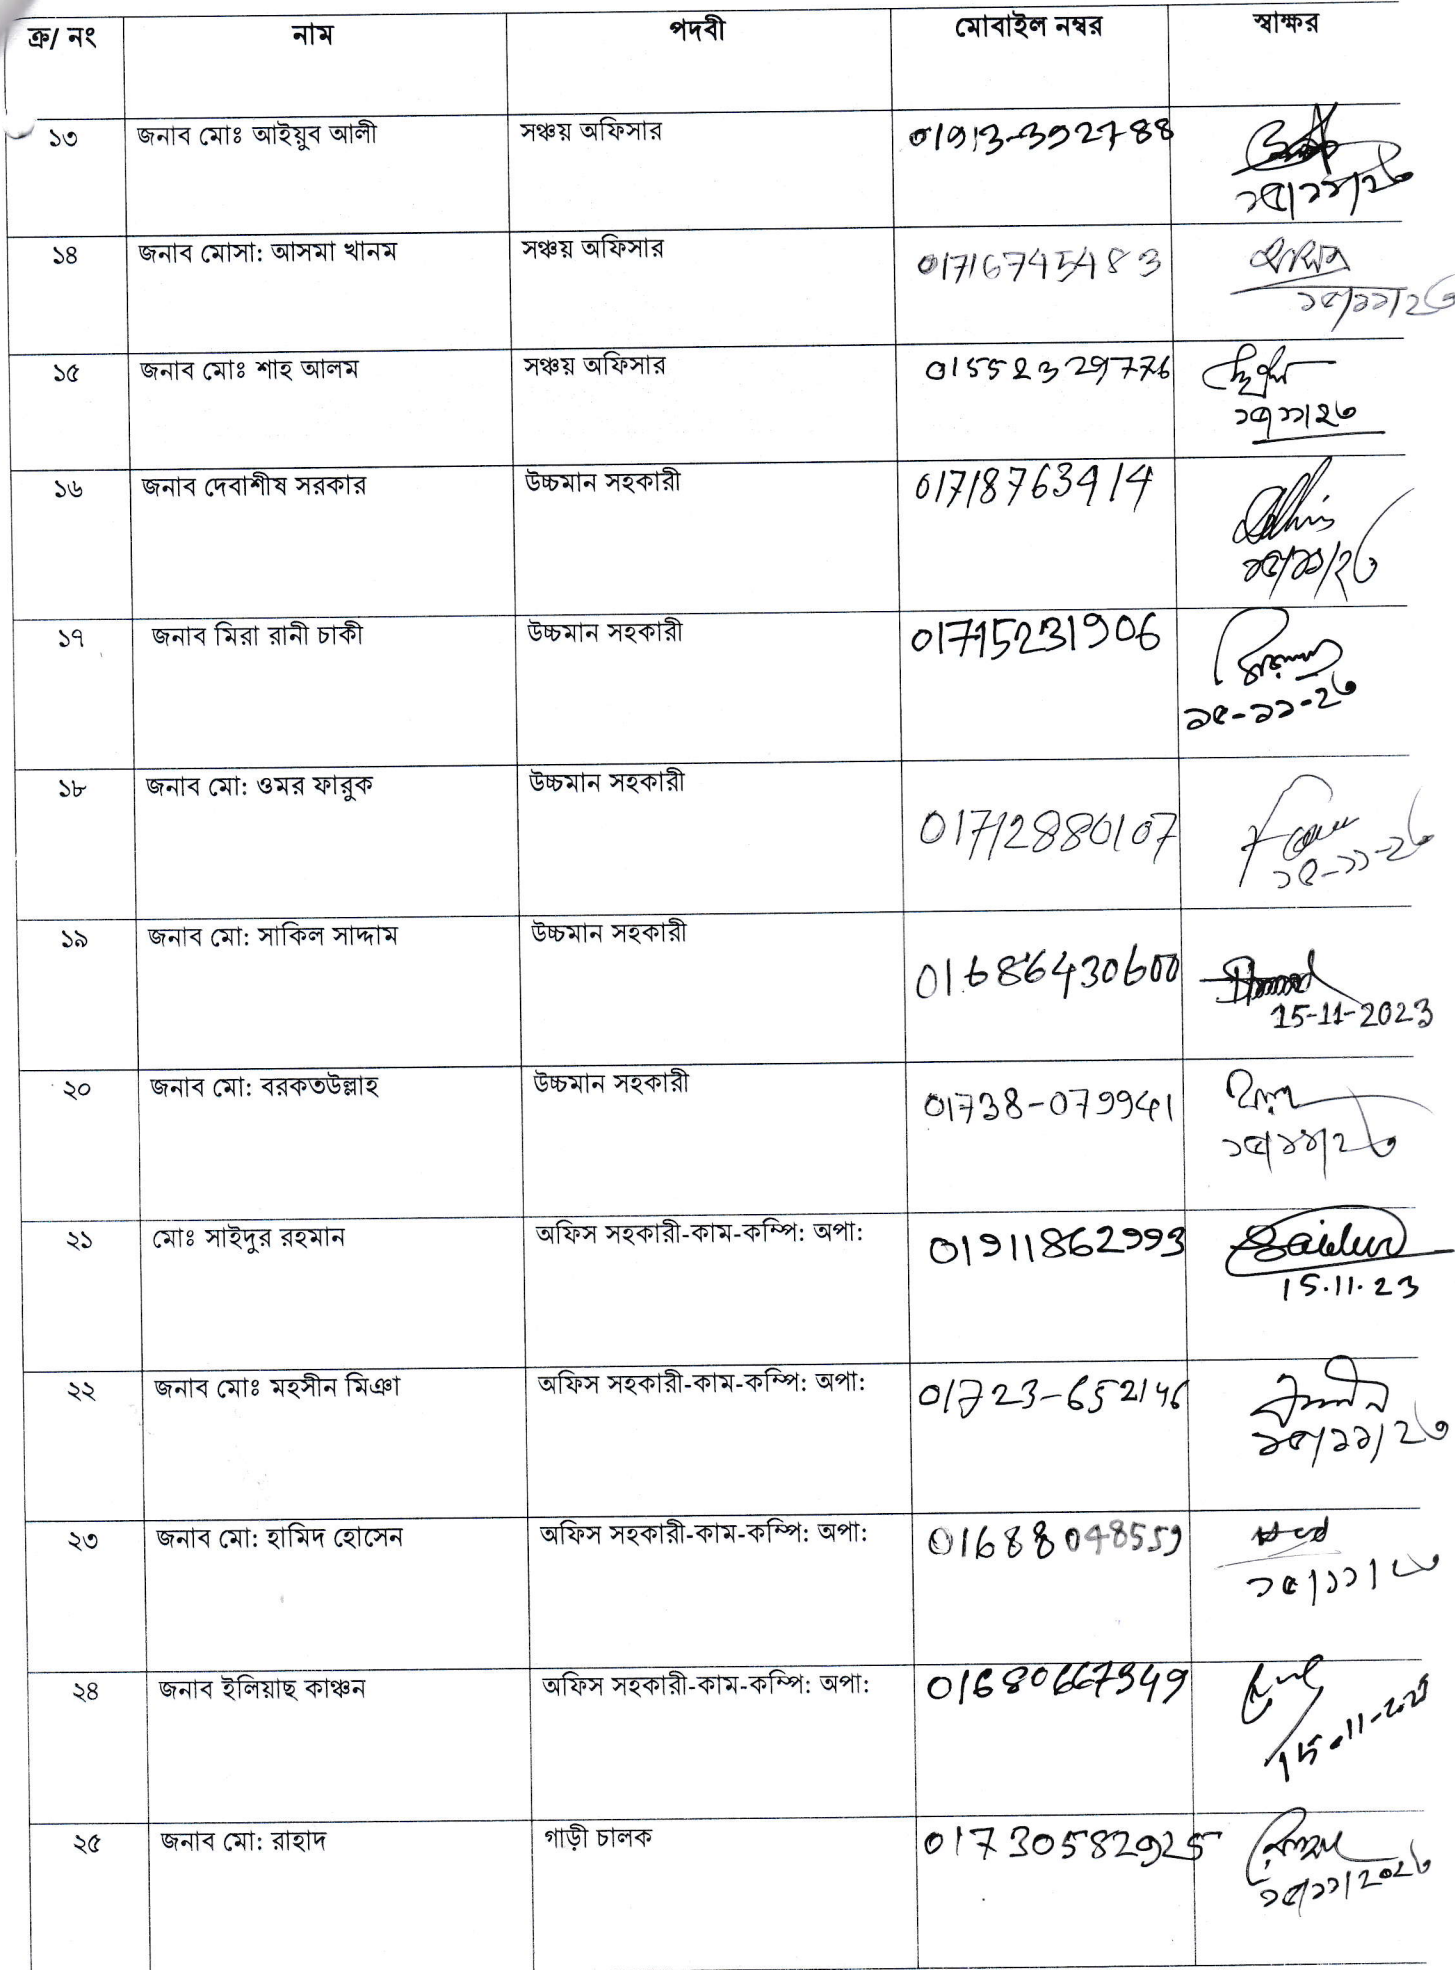 ক্র/ নং নাম পদবী মোবাইল নম্বর স্বাক্ষর
১৩ জনাব মোঃ আইয়ুব আলী সঞ্চয় অফিসার 01913-392788
১৫/১১/২৩
১৪ জনাব মোসা: আসমা খানম সঞ্চয় অফিসার 01716745483
১৫/১১/২৩
১৫ জনাব মোঃ শাহ আলম সঞ্চয় অফিসার 01552329776
১৫/১১/২৩
১৬ জনাব দেবাশীষ সরকার উচ্চমান সহকারী 01718763414
১৫/১১/২৩
১৭ জনাব মিরা রানী চাকী উচ্চমান সহকারী 01715231906
১৫-১১-২৩
১৮ জনাব মো: ওমর ফারুক উচ্চমান সহকারী 01712880107
১৫-১১-২৩
১৯ জনাব মো: সাকিল সাদ্দাম উচ্চমান সহকারী 01686430600
15-11-2023
২০ জনাব মো: বরকতউল্লাহ উচ্চমান সহকারী 01738-079941
১৫/১১/২৩
২১ মোঃ সাইদুর রহমান অফিস সহকারী-কাম-কম্পি: অপা: 01911862993 Saidur
15.11.23
২২ জনাব মোঃ মহসীন মিঞা অফিস সহকারী-কাম-কম্পি: অপা: 01723-652146
১৫/১১/২৩
২৩ জনাব মো: হামিদ হোসেন অফিস সহকারী-কাম-কম্পি: অপা: 01688048559
২৪ জনাব ইলিয়াছ কাঞ্চন অফিস সহকারী-কাম-কম্পি: অপা: 01680667349
২৫ জনাব মো: রাহাদ গাড়ী চালক 01730582925
১৫/১১/২০২৩